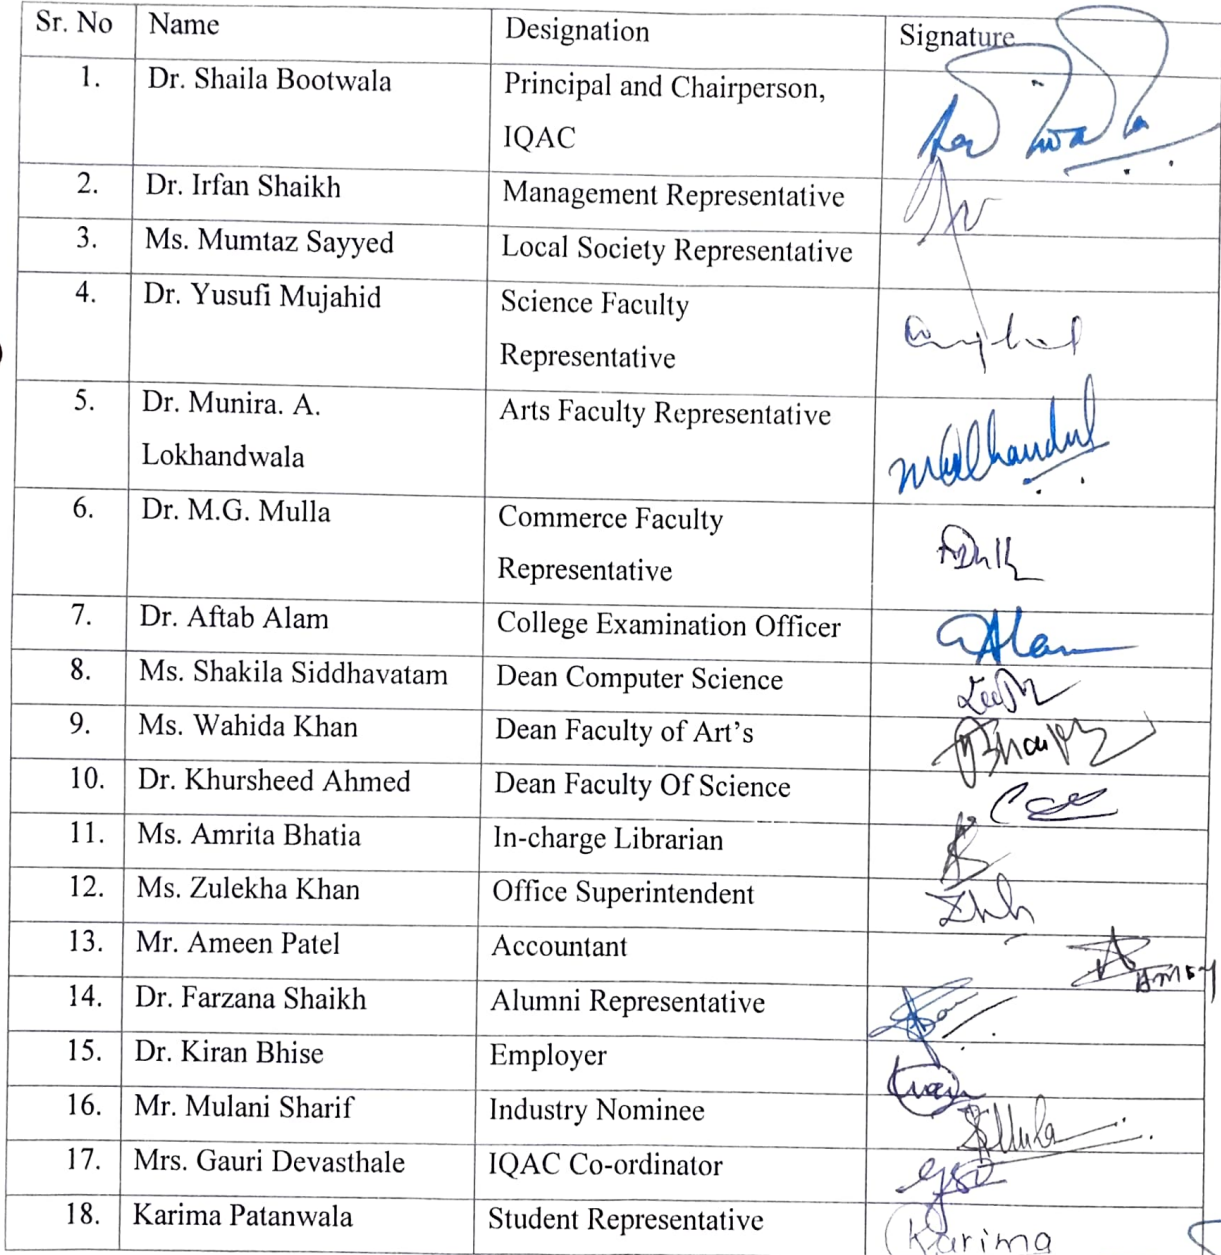 Sr. No Name Designation Signature
1. Dr. Shaila Bootwala Principal and Chairperson,
IQAC
2. Dr. Irfan Shaikh Management Representative
3. Ms. Mumtaz Sayyed Local Society Representative
4. Dr. Yusufi Mujahid Science Faculty
Representative
5. Dr. Munira. A. Arts Faculty Representative
Lokhandwala
6. Dr. M.G. Mulla Commerce Faculty
Representative
7. Dr. Aftab Alam College Examination Officer
8. Ms. Shakila Siddhavatam Dean Computer Science
9. Ms. Wahida Khan Dean Faculty of Art’s
10. Dr. Khursheed Ahmed Dean Faculty Of Science
11. Ms. Amrita Bhatia In-charge Librarian
12. Ms. Zulekha Khan Office Superintendent
13. Mr. Ameen Patel Accountant
14. Dr. Farzana Shaikh Alumni Representative
15. Dr. Kiran Bhise Employer
16. Mr. Mulani Sharif Industry Nominee
17. Mrs. Gauri Devasthale IQAC Co-ordinator
18. Karima Patanwala Student Representative Karima